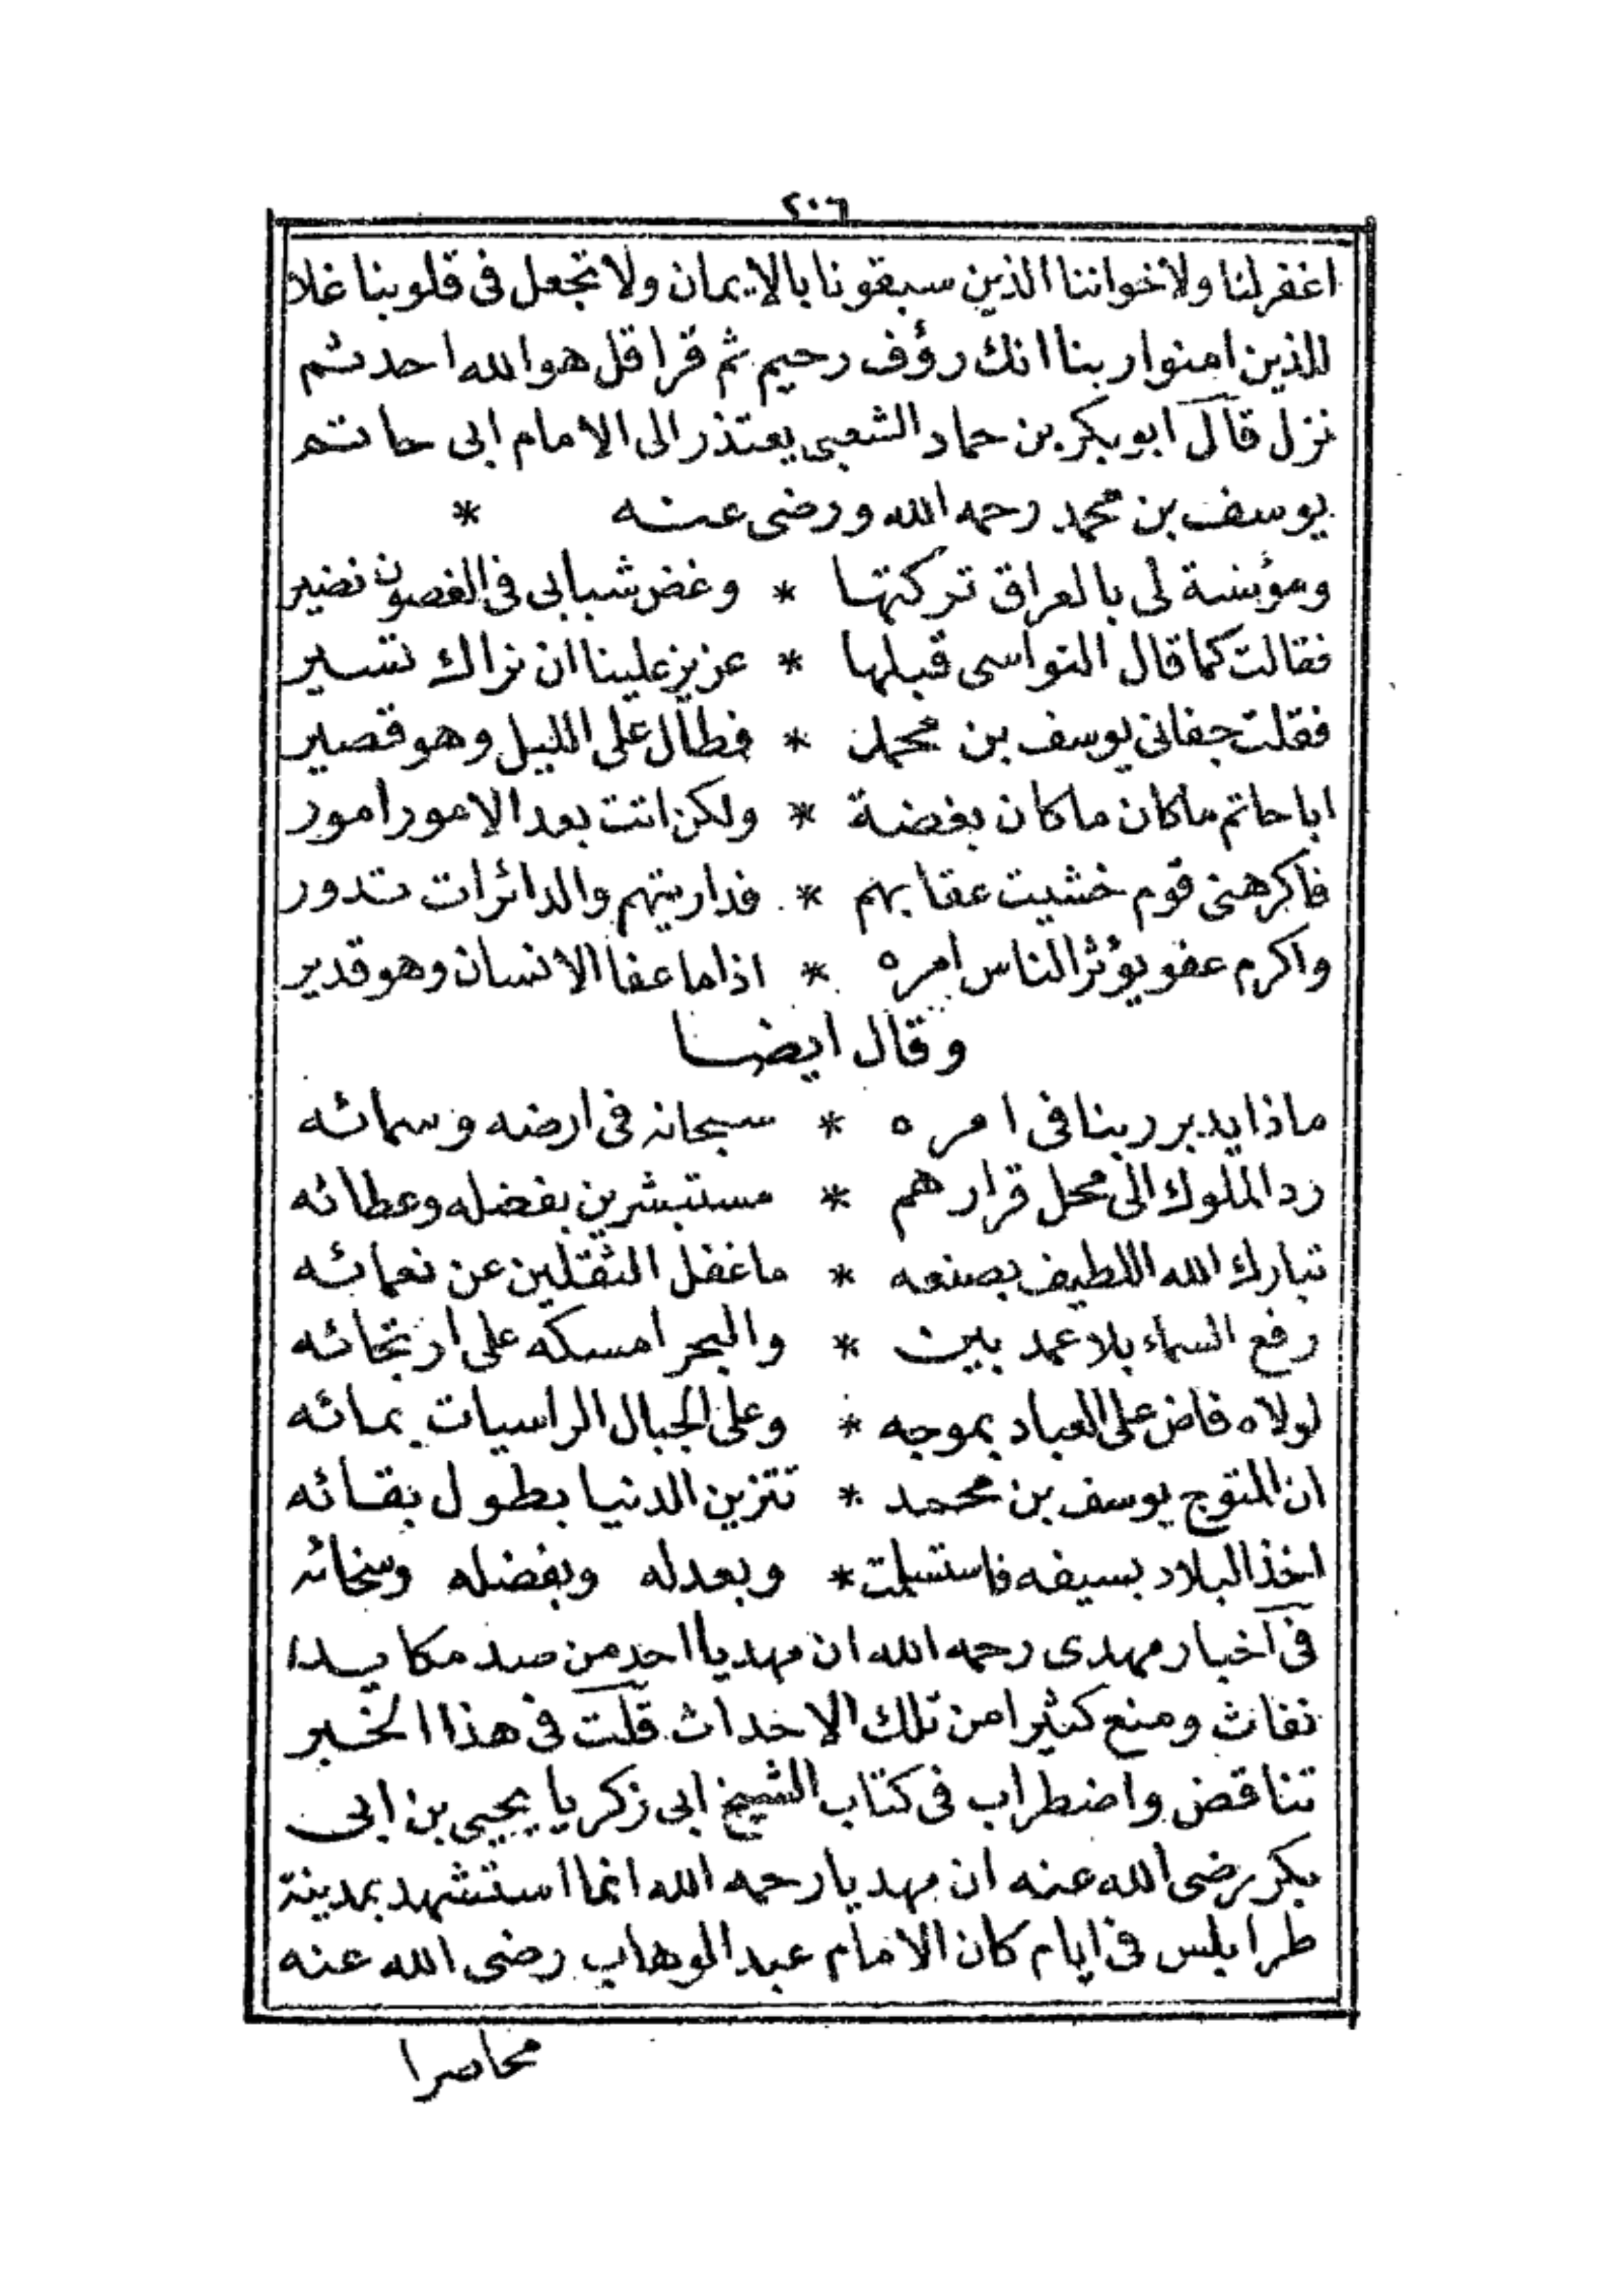 ٢٠٦
اغفر لنا ولاخواننا الذين سبقونا بالايمان ولا تجعل فى قلوبنا غلا
للذين امنوا ربنا انك رؤف رحيم ثم قرا قل هو الله احد ثم
نزل قال ابو بكر بن حماد الشعبى يعتذر الى الامام ابى حاتم
يوسف بن محمد رحمه الله ورضى عنه *
ومؤنسة لى بالعراق تركتها * وغض شبابى فى الغصون نضير
فقالت كما قال النواسى قبلها * عزيز علينا ان نراك تسير
فقلت جفانى يوسف بن محمد * فطال على الليل وهو قصير
ابا حاتم ما كان ما كان بغضة * ولكن اتت بعد الامور امور
فاكرهنى قوم خشيت عقابهم * فداريتهم والدائرات تدور
واكرم عفو يؤثر الناس امره * اذا ما عفا الانسان وهو قدير
وقال ايضا
ماذا يدبر ربنا فى امره * سبحانه فى ارضه وسمائه
رد الملوك الى محل قرارهم * مستبشرين بفضله وعطائه
تبارك الله اللطيف بصنعه * ما غفل الثقلين عن نعمائه
رفع السماء بلا عمد بين * والبحر امسكه على ارتجائه
لولاه فاض على العباد بموجه * وعلى الجبال الراسيات بمائه
ان المتوج يوسف بن محمد * تتزين الدنيا بطول بقائه
اخذ البلاد بسيفه فاستسلمت * وبعدله وبفضله وسخائه
فى اخبار مهدى رحمه الله ان مهديا احد من صد مكايدا
نفاث ومنع كثيرا من تلك الاحداث قلت فى هذا الخبر
تناقض واضطراب فى كتاب الشيخ ابى زكريا يحيى بن ابى
بكر رضى الله عنه ان مهديا رحمه الله انما استشهد بمدينة
طرابلس فى ايام كان الامام عبد الوهاب رضى الله عنه
محاصرا